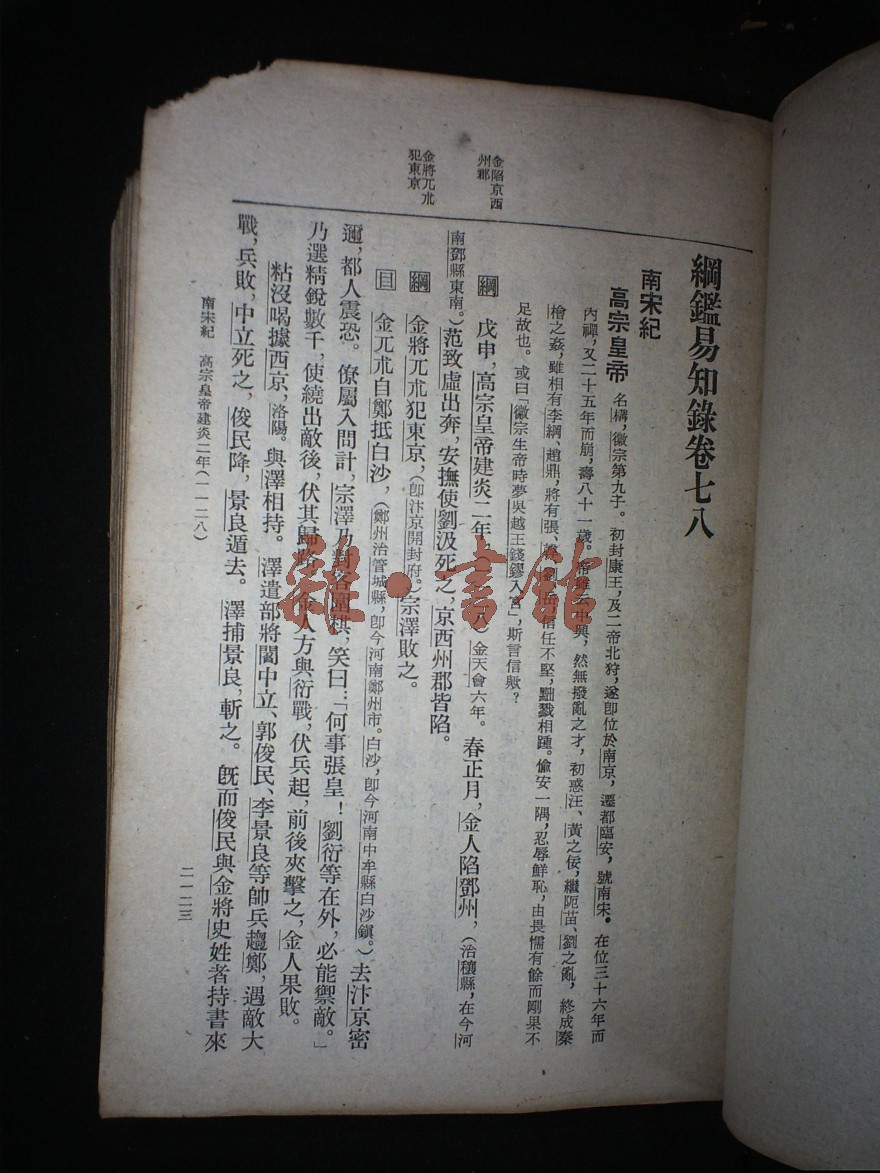 綱鑑易知錄卷七八
南宋紀
高宗皇帝 名構,徽宗第九子。初封康王,及二帝北狩,遂卽位於南京,遷都臨安,號南宋。在位三十六年而
內禪,又二十五年而崩,壽八十一歲。帝雖云中興,然無撥亂之才,初惑汪、黃之佞,繼阨苗、劉之亂,終成秦
檜之姦,雖相有李綱、趙鼎,將有張、韓、劉、岳,信任不堅,黜戮相踵。偷安一隅,忍辱鮮恥,由畏懦有餘而剛果不
足故也。或曰「徽宗生帝時夢吳越王錢鏐入宮」,斯言信歟?
金陷京西
州郡
綱 戊申,高宗皇帝建炎二年,八)金天會六年。春正月,金人陷鄧州,(治穰縣,在今河
南鄧縣東南。)范致虛出奔,安撫使劉汲死之,京西州郡皆陷。
金將兀朮
犯東京
綱 金將兀朮犯東京,(卽汴京開封府。)宗澤敗之。
目 金兀朮自鄭抵白沙,(鄭州治管城縣,卽今河南鄭州市。白沙,卽今河南中牟縣白沙鎭。)去汴京密
邇,都人震恐。僚屬入問計,宗澤乃對客圍棋,笑曰:「何事張皇!劉衍等在外,必能禦敵。」
乃選精銳數千,使繞出敵後,伏其歸路。金人方與衍戰,伏兵起,前後夾擊之,金人果敗。
粘沒喝據西京,洛陽。與澤相持。澤遣部將閻中立、郭俊民、李景良等帥兵趨鄭,遇敵大
戰,兵敗,中立死之,俊民降,景良遁去。澤捕景良,斬之。旣而俊民與金將史姓者持書來
南宋紀 高宗皇帝建炎二年(一一二八)
二一二三
雜·書館